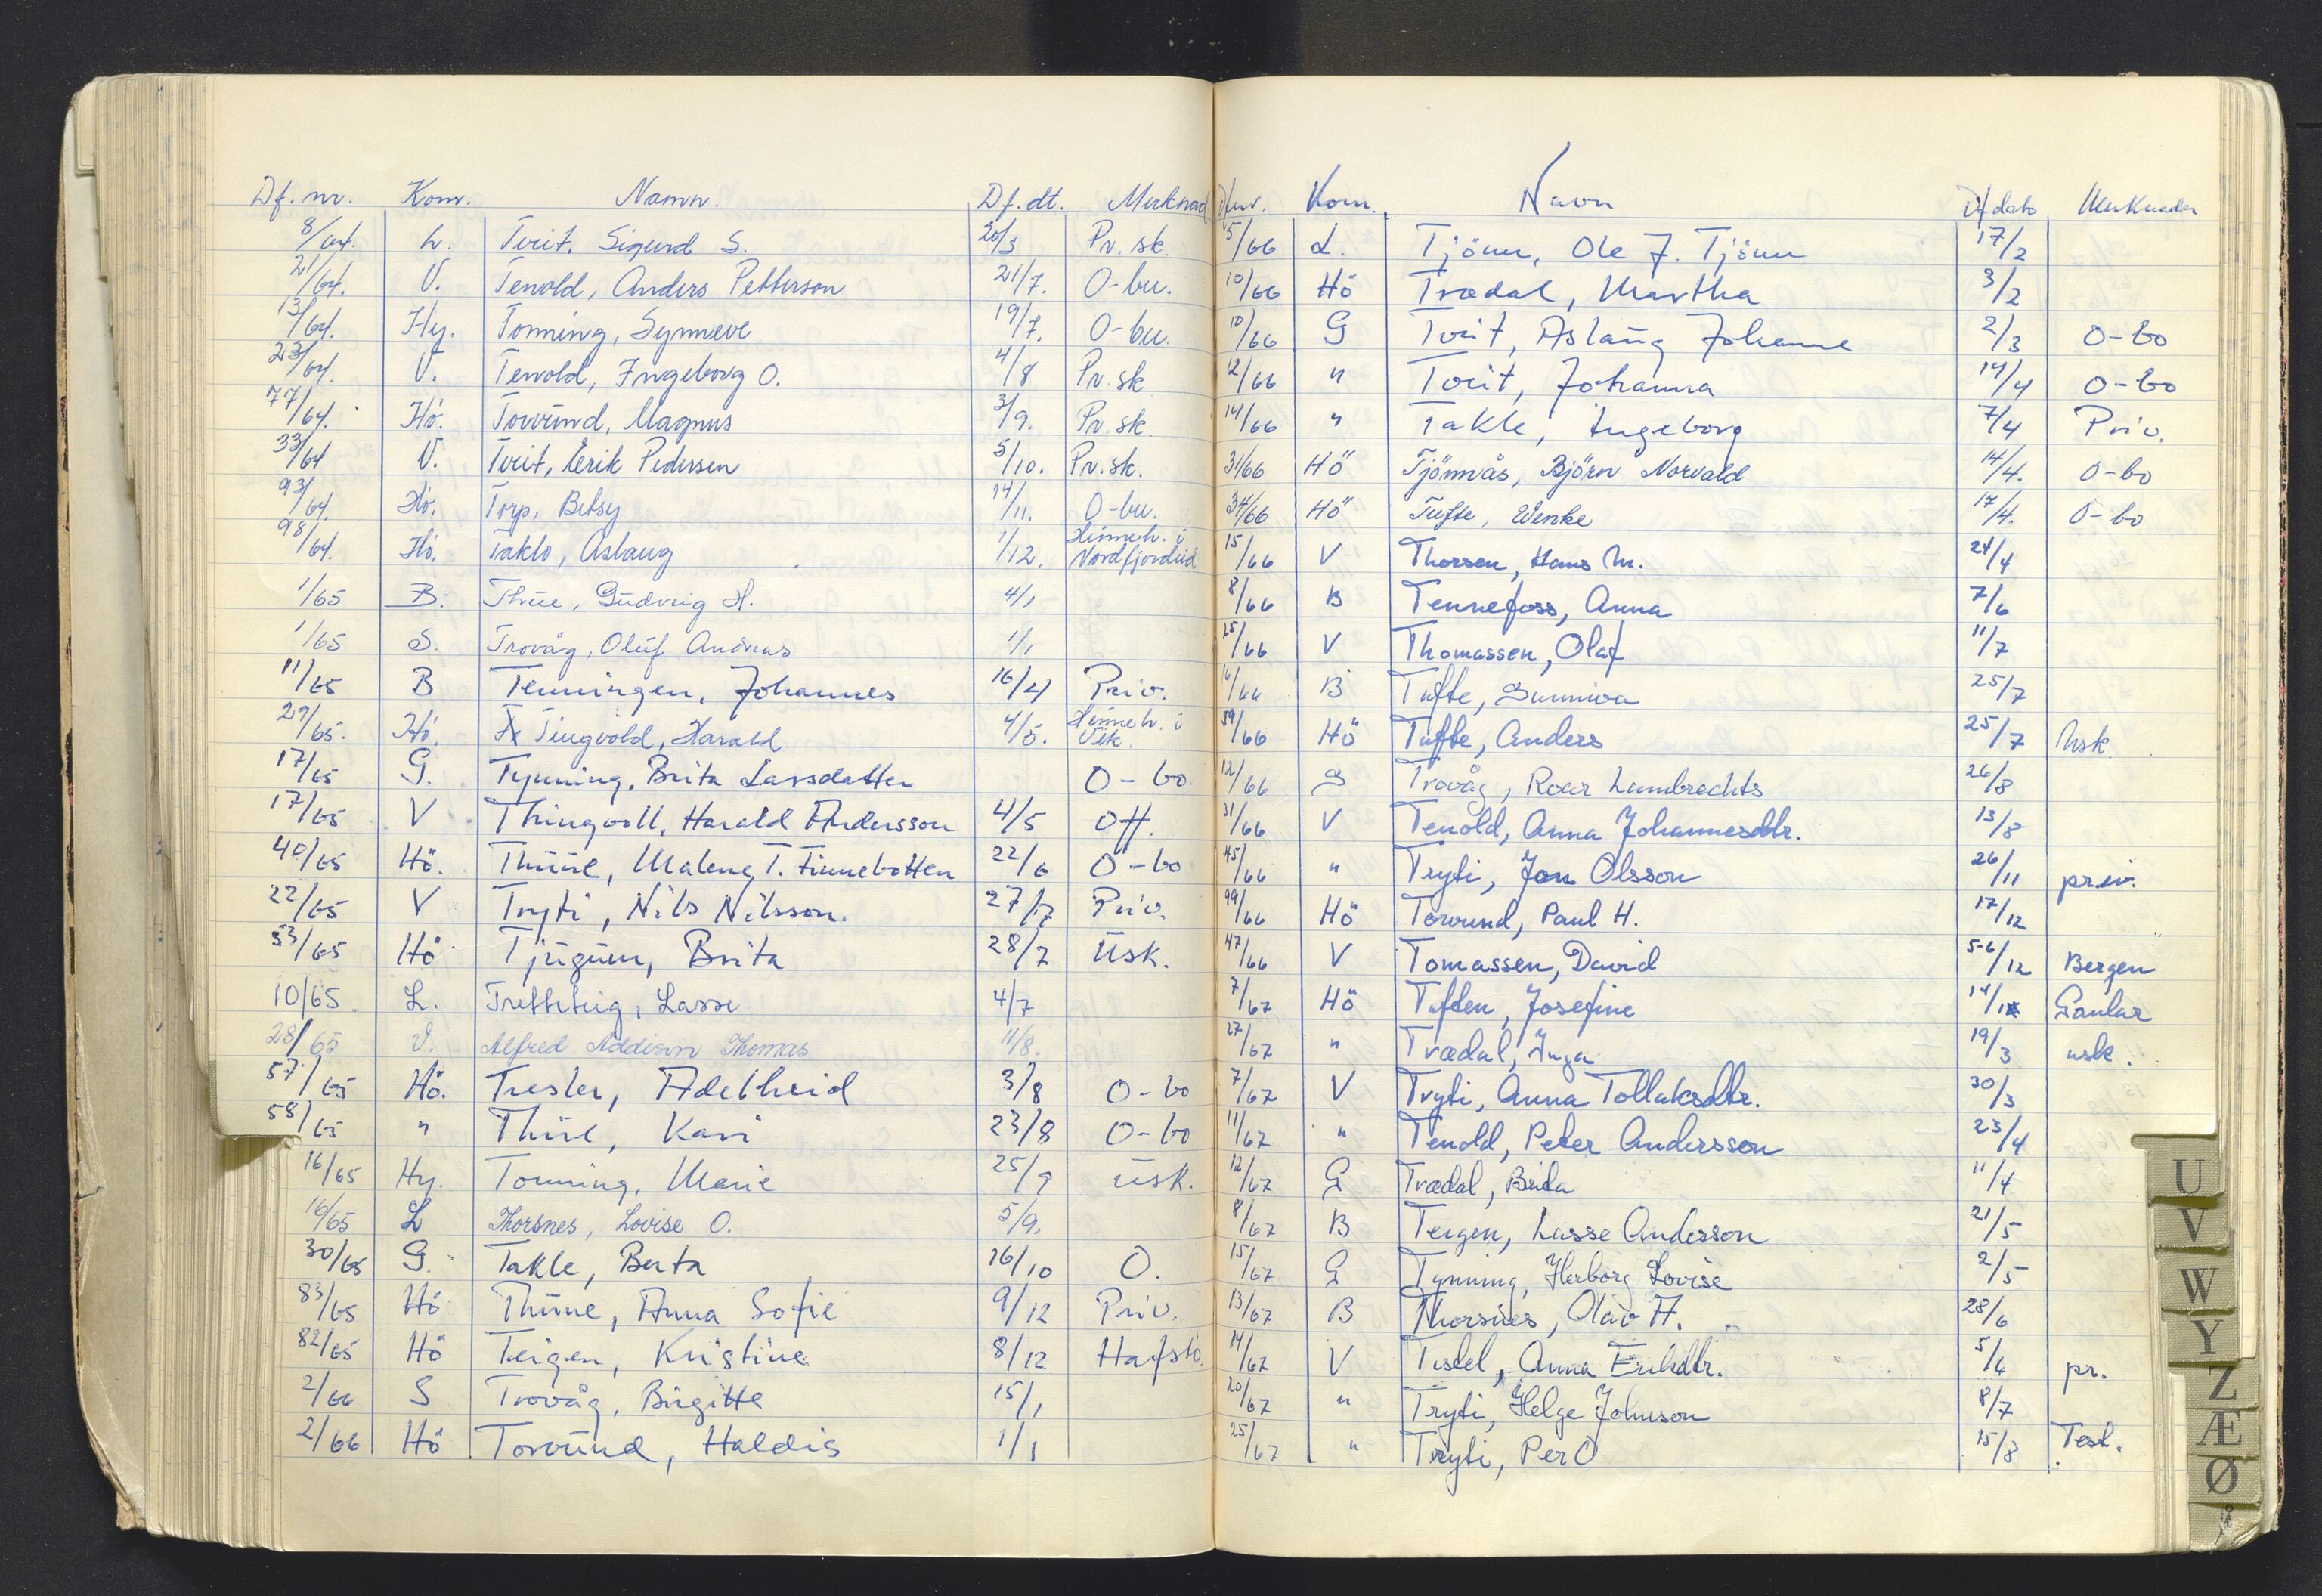 Df. nr. Kom. Namn. Df. dt. Merknad
8/64. L. Tveit. Sigurd S. 20/3 Pr. sk.
21/64. V. Tenold, Anders Petterson 21/7. O-bu.
13/64. Hy. Tonning, Synneve 19/7. O-bu.
23/64. V. Tenold, Ingeborg O. 4/8 Pr. sk
77/64. Hö. Torvund, Magnus 3/9. Pr. sk.
33/64 V. Tveit, Erik Pedersen 5/10. Pr. sk.
93/64. Hö. Torp, Betsy 14/11. O-bu.
98/64. Hö. Taklo, Aslaug 1/12. Heimeh. i Nordfjordeid
1/65 B. Thue, Gudveig H. 4/1
1/65 S. Trovåg, Oluf Andreas 1/1
11/65 B Tenningen, Johannes 16/4 Priv.
29/65. Hö. Tingvold, Harald 4/5. Heimeh. i Vik.
17/65 G. Tynning, Brita Larsdatter O-bo
17/65 V Thingvoll, Harald Andersson 4/5 Off.
40/65 Hö. Thüne, Malene T. Finnebotten 22/6 O-bo
22/65 V Tryti, Nils Nilsson. 27/7 Priv.
53/65 Hö Tjugum, Brita 28/7 Usk.
10/65 L. Tretteteig, Lasse 4/7
28/65 V. Alfred Addison Thomas 11/8.
57/65 Hö. Tresler, Adelheid 3/8 O-bo
58/65 " Thüne, Kari 23/8 O-bo
16/65 Hy. Tonning, Marie 25/9 usk.
16/65 L Thorsnes, Lovise O. 5/9.
30/65 G. Takle, Berta 16/10 O.
83/65 Hö Thüne, Anna Sofie 9/12 Priv.
82/65 Hö Teigen, Kristine 8/12 Hafslo.
2/66 S Trovåg, Birgitte 15/1
2/66 Hö Torvund, Haldis 1/1
Kom. Navn Df dato Merknader
5/66 L. Tjönn, Ole J. Tjönn 17/2
10/66 Hö Trædal, Martha 3/2
10/66 G Tveit, Aslaug Johanne 2/3 O-bo
12/66 " Tveit, Johanna 14/4 O-bo
14/66 " Takle, Ingeborg 7/4 Priv.
31/66 Hö Tjönnås, Björn Norvald 14/4. O-bo
34/66 Hö Tufte, Wenke 17/4. O-bo
15/66 V Thorsen, Hans M. 24/4
8/66 B Tennefoss, Anna 7/6
25/66 V Thomassen, Olaf 11/7
16/66 B Tufte, Sunniva 25/7
59/66 Hö Tufte, Anders 25/7 Usk.
12/66 S Trovåg, Roar Lambrechts 26/8
31/66 V Tenold, Anna Johannesdtr. 13/8
45/66 " Tryti, Jon Olsson 26/11 priv.
99/66 Hö Torvund, Paul H. 17/12
47/66 V Tomassen, David 5-6/12 Bergen
7/67 Hö Tuften, Josefine 14/1 Gaular
27/67 " Trædal, Inga 19/3 usk.
7/67 V Tryti, Anna Tollaksdtr. 30/3
11/67 " Tenold, Peter Andersson 23/4
12/67 G Trædal, Brita 11/4
8/67 B Teigen, Lasse Anderson 21/5
15/67 G Tynning, Herborg Lovise 2/5
13/67 B Thorsnes, Olav A. 28/6
14/67 V Tistel, Anna Eriksdtr. 5/6 pr.
20/67 " Tryti, Helge Johnson 8/7
25/67 " Tryti, Per O 15/8 Test.
U
V
W
Y
Z
Æ
Ø
Å